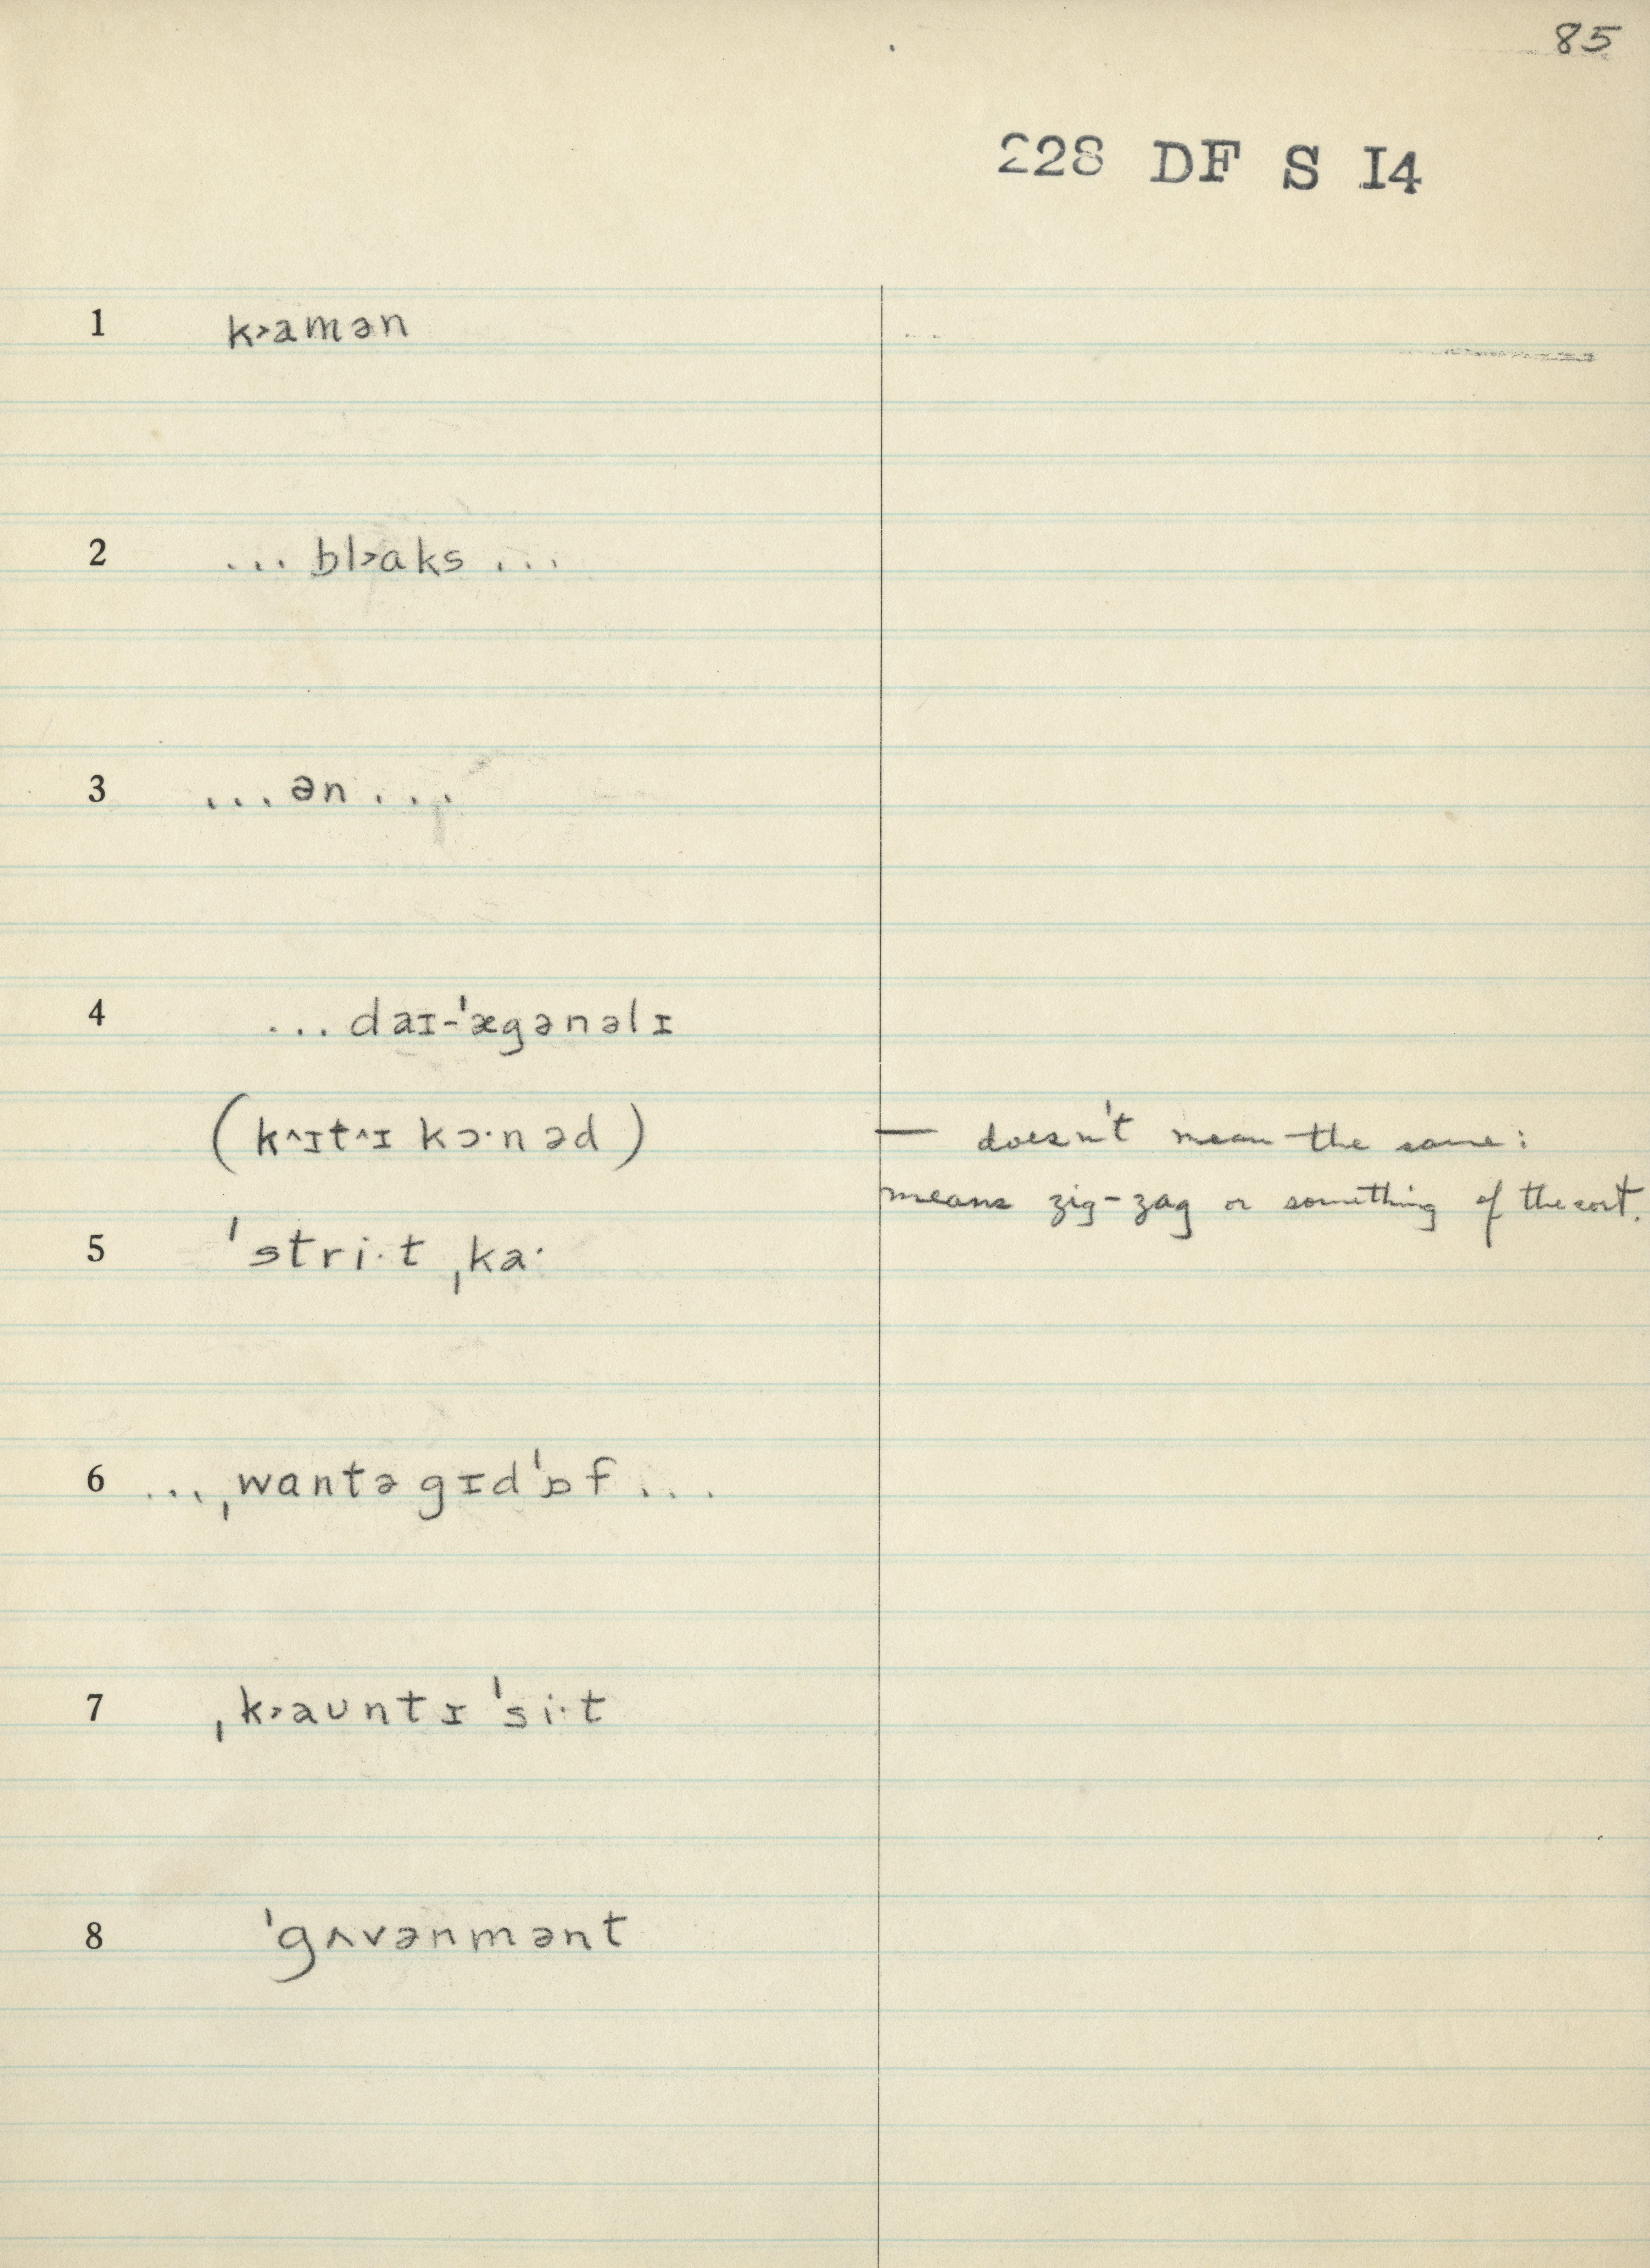 85
228 DF S I4
1 k˃amən
2 ... bl˃aks ...
3 ... ən ...
4 ... daɪ-ˈægənəlɪ
(k^ɪt^ɪ kɔ·nəd) — doesn't mean the same:
means zig-zag or something of the sort.
5 ˈstri·t ˌka·
6 ... ˌwantə gɪdˈɒf ...
7 ˌk˃aʊntɪ ˈsi·t
8 ˈgʌvənmənt